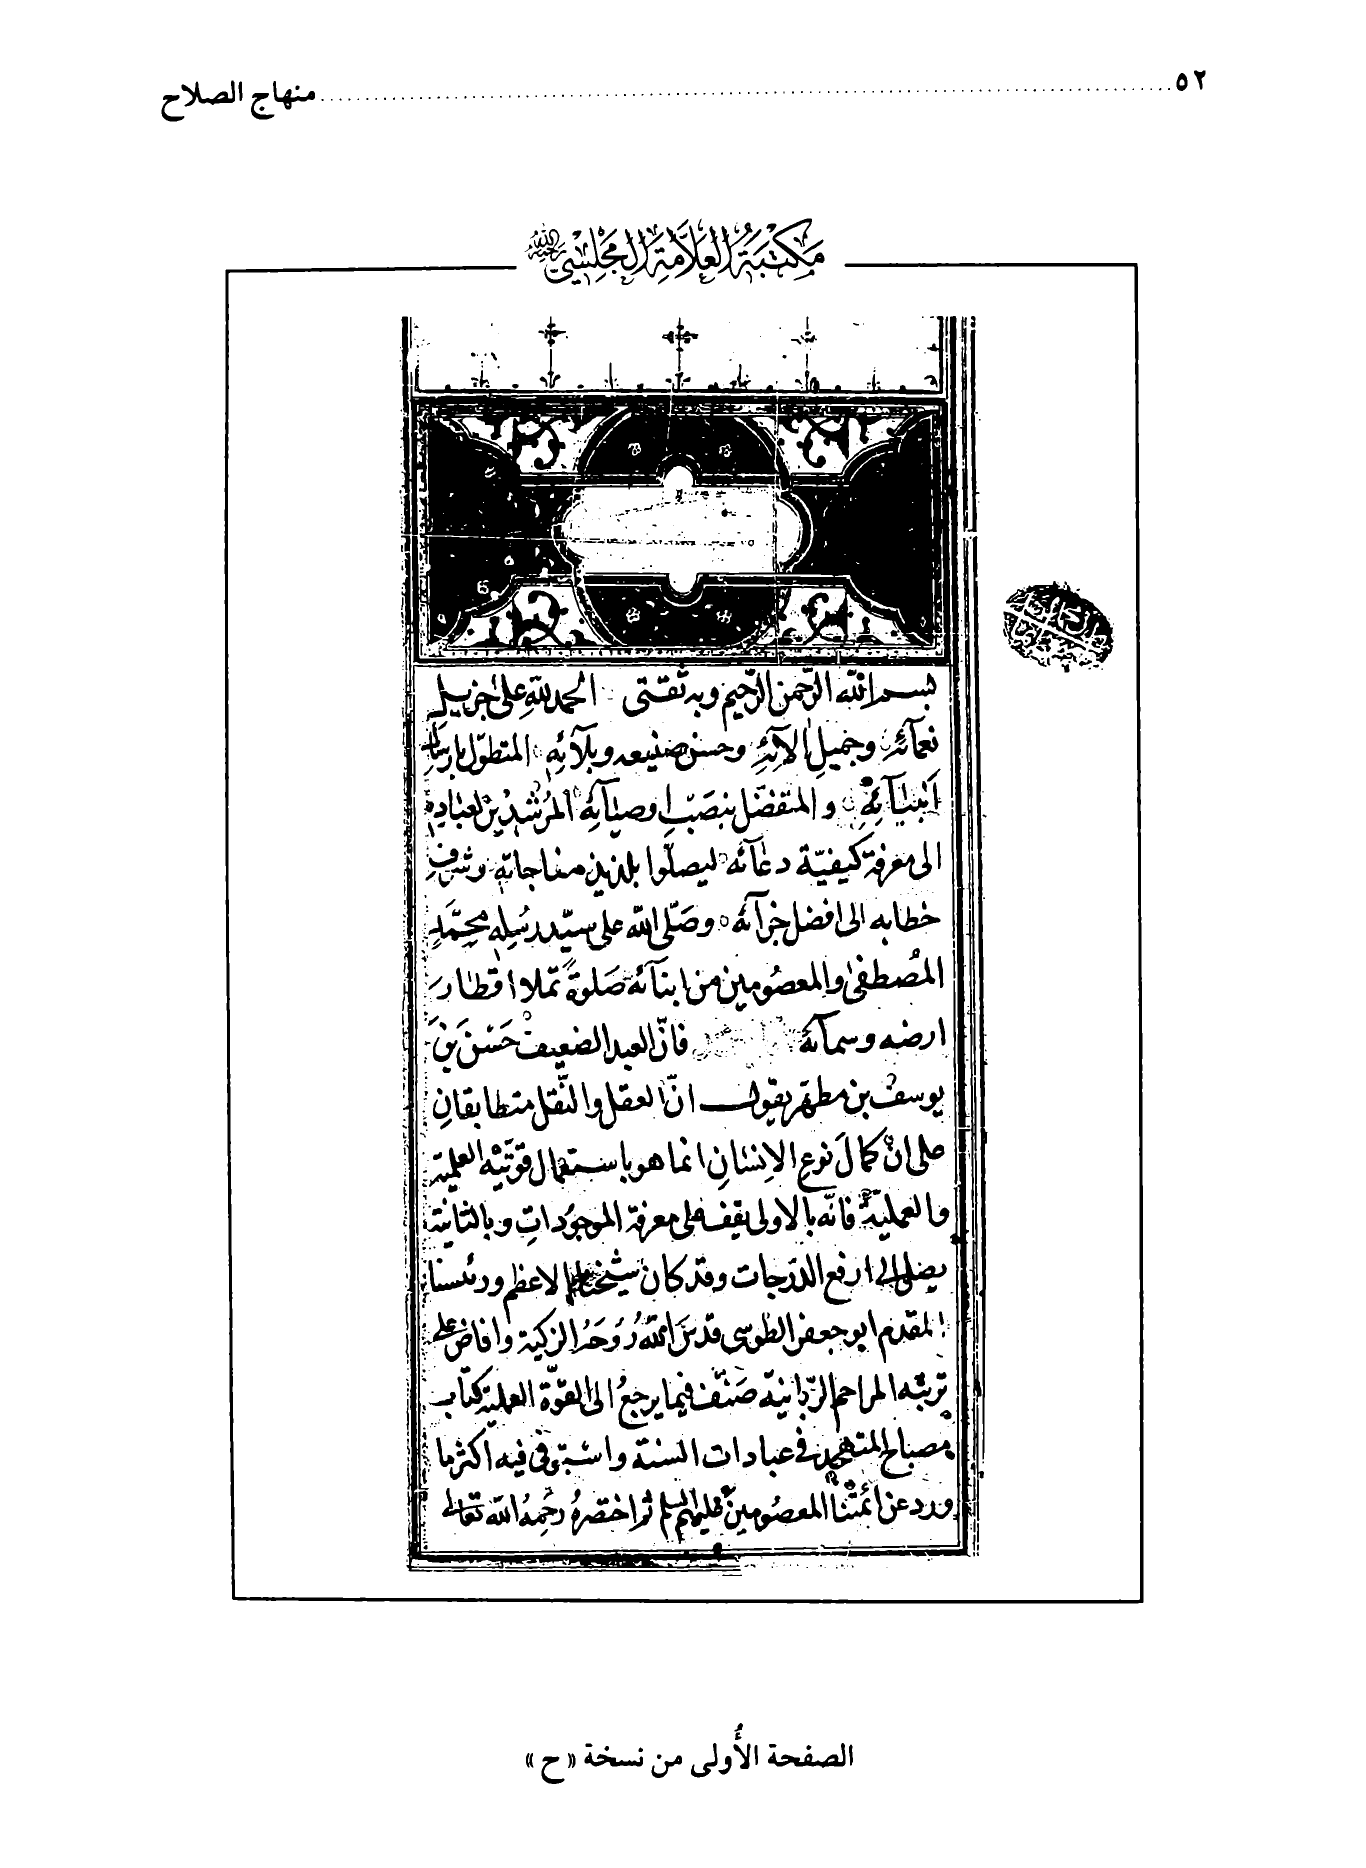 ٥٢ منهاج الصلاح
مكتبة العلامة المجلسي رحمه الله
بسم الله الرحمن الرحيم وبه ثقتي الحمد لله على جزيل
نعمائه وجميل الآئه وحسن صنيعه وبلآئه المتطول بارسال
انبيآئه والمتفضل بنصب اوصيآئه المرشدين لعباده
الى معرفة كيفية دعآئه ليصلوا بلذيذ مناجاته وشرف
خطابه الى افضل جزآئه وصلى الله على سيد رسله محمد
المصطفى والمعصومين من ابنآئه صلوة تملا اقطار
ارضه وسمآئه فان العبد الضعيف حسن بن
يوسف بن مطهر يقول ان العقل والنقل متطابقان
على ان كمال نوع الانسان انما هو باستعمال قوتيه العلمية
والعملية فانه بالاولى يقف على معرفة الموجودات وبالثانية
يصل الى ارفع الدرجات وقد كان شيخنا الاعظم ورئيسنا
المقدم ابو جعفر الطوسي قدس الله روحه الزكية وافاض على
تربته المراحم الربانية صنف فيما يرجع الى القوة العملية كتاب
مصباح المتهجد في عبادات السنة واستوفى فيه اكثر ما
ورد عن ائمتنا المعصومين عليهم السلم ثم اختصره رحمه الله تعالى
الصفحة الأُولى من نسخة «ح»